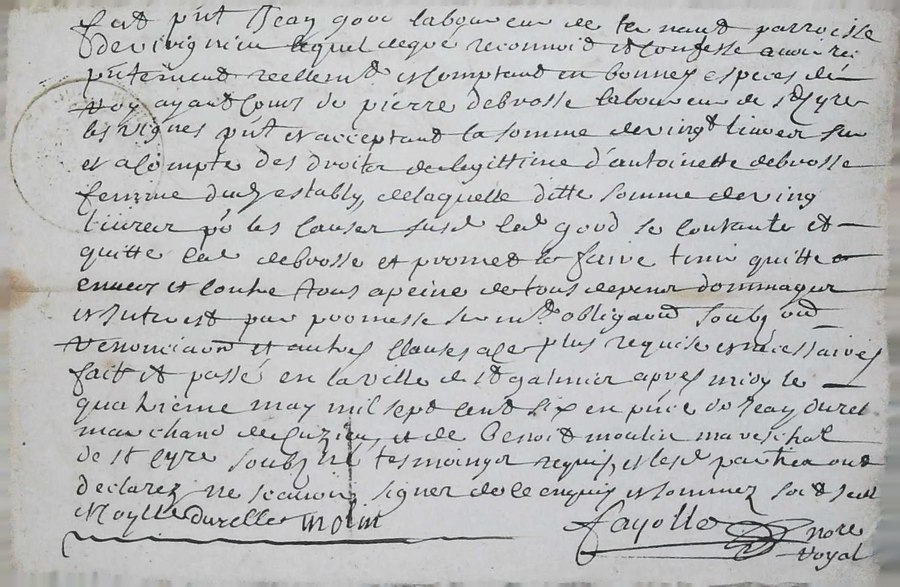 fut p'nt Jean good laboureur de parroisse
de lequel de gré reconnoit et confesse avoir
p'ntement reellem't et comptant en bonnes especes de
Roy ayant cours de pierre debrosse laboureur de s't Cyre
les vignes p'nt et acceptant la somme de vingt livres sur
et a compte des droits de legittime d'antoinette debrosse
femme dud establly, de laquelle ditte somme de vingt
livres po' les causes susd led good se contante et
quitte led debrosse et promet le faire tenir quitte
envers et contre tous a peine de tous despens dommages
et interest par promesse serm't obliga'on soubz'on
renoncia'on et autres clauses a ce plus requise et necessaires
fait et passé en la ville de s't galmier apres midy le
quatrieme may mil sept cent six en p'nce de Jean durel
marchand de Cuzieu, et de Benoit moulin mareschal
de s't Cyre soubz'né tesmoings requis, et lesd parties ont
declarez ne scavoir signer de ce enquis et sommez
durelle molin
fayolle
nore
royal